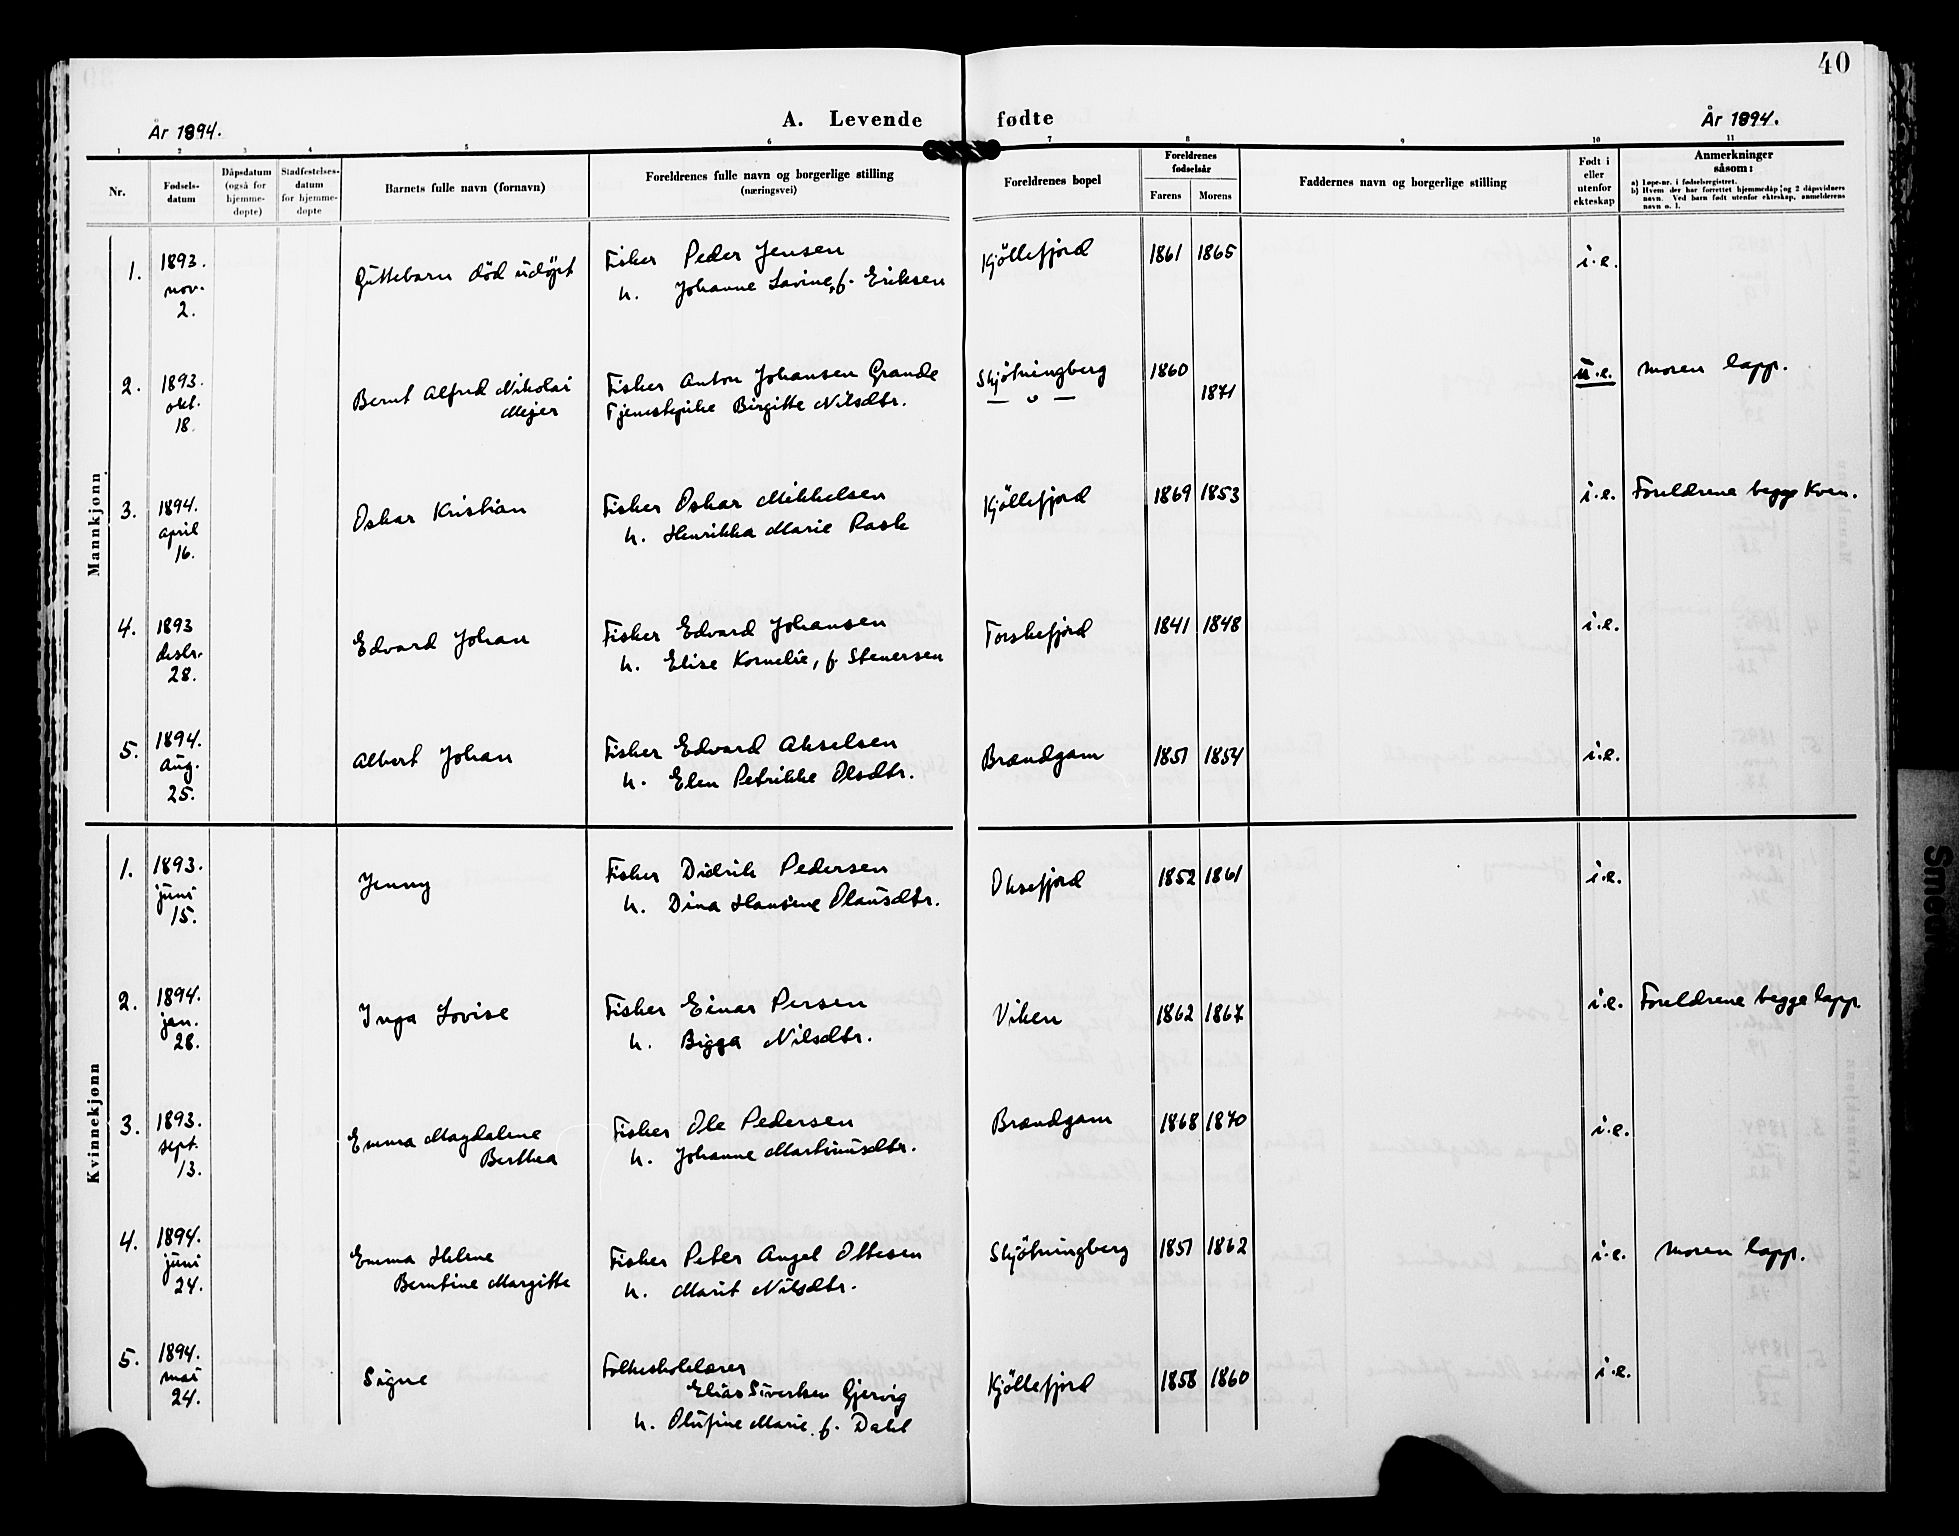 40
År 1894.
A. Levende fødte
År 1894.
1 2 3 4 5 6 7 8 9 10 11
Nr.
Fødsels-
datum
Dåpsdatum
(også for
hjemme-
døpte)
Stadfestelses-
datum
for hjemme-
døpte
Barnets fulle navn (fornavn)
Foreldrenes fulle navn og borgerlige stilling
(næringsvei)
Foreldrenes bopel
Foreldrenes
fødselsår
Farens Morens
Faddernes navn og borgerlige stilling
Født i
eller
utenfor
ekteskap
Anmerkninger
såsom:
a) Løpe-nr. i fødselsregistret.
b) Hvem der har forrettet hjemmedåp og 2 dåpsvidners
navn. Ved barn født utenfor ekteskap, anmelderens
navn o. l.
Mannkjønn
1. 1893. nov. 2. Guttebarn død udøpt Fisker Peder Jensen Kjøllefjord 1861 1865 i.e.
h. Johanne Lavine, f. Eriksen
2. 1893. okt. 18. Bernt Alfred Nikolai Fisker Anton Johansen Grande Skjøtningberg 1860 u.e. Moren lapp.
Mejer Tjenestepike Birgitte Nilsdtr. — " — 1871
3. 1894. april 16. Oskar Kristian Fisker Oskar Mikkelsen Kjøllefjord 1869 1853 i.e. Foreldrene begge Kven.
h. Henrikka Marie Rask
4. 1893 desbr. 28. Edvard Johan Fisker Edvard Johansen Torskefjord 1841 1848 i.e.
h. Elise Kornelie, f. Stenersen
5. 1894. Aug. 25. Albert Johan Fisker Edvard Akselsen Brændgam 1851 1854 i.e.
h. Elen Petrikke Olsdtr.
Kvinnekjønn
1. 1893. juni 15. Jenny Fisker Didrik Pedersen Oksefjord 1852 1861 i.e.
h. Dina Hansine Olausdtr.
2. 1894. jan. 28. Inga Lovise Fisker Einar Persen Viken 1862 1867 i.e. Foreldrene begge lapp.
h. Bigga Nilsdtr.
3. 1893. sept. 13. Emma Magdalene Fisker Ole Pedersen Brændgam 1868 1870 i.e.
Berthea h. Johanne Martinusdtr.
4. 1894. juni 24. Emma Helene Fisker Peter Angel Ottesen Skjøtningberg 1851 1862 i.e. Moren lapp.
Berntine Margitte h. Marit Nilsdtr.
5. 1894. mai 24. Signe Folkeskolelærer
Elias Sivertsen Gjervig Kjøllefjord 1858 1860 i.e.
h. Olufine Marie, f. Dahl